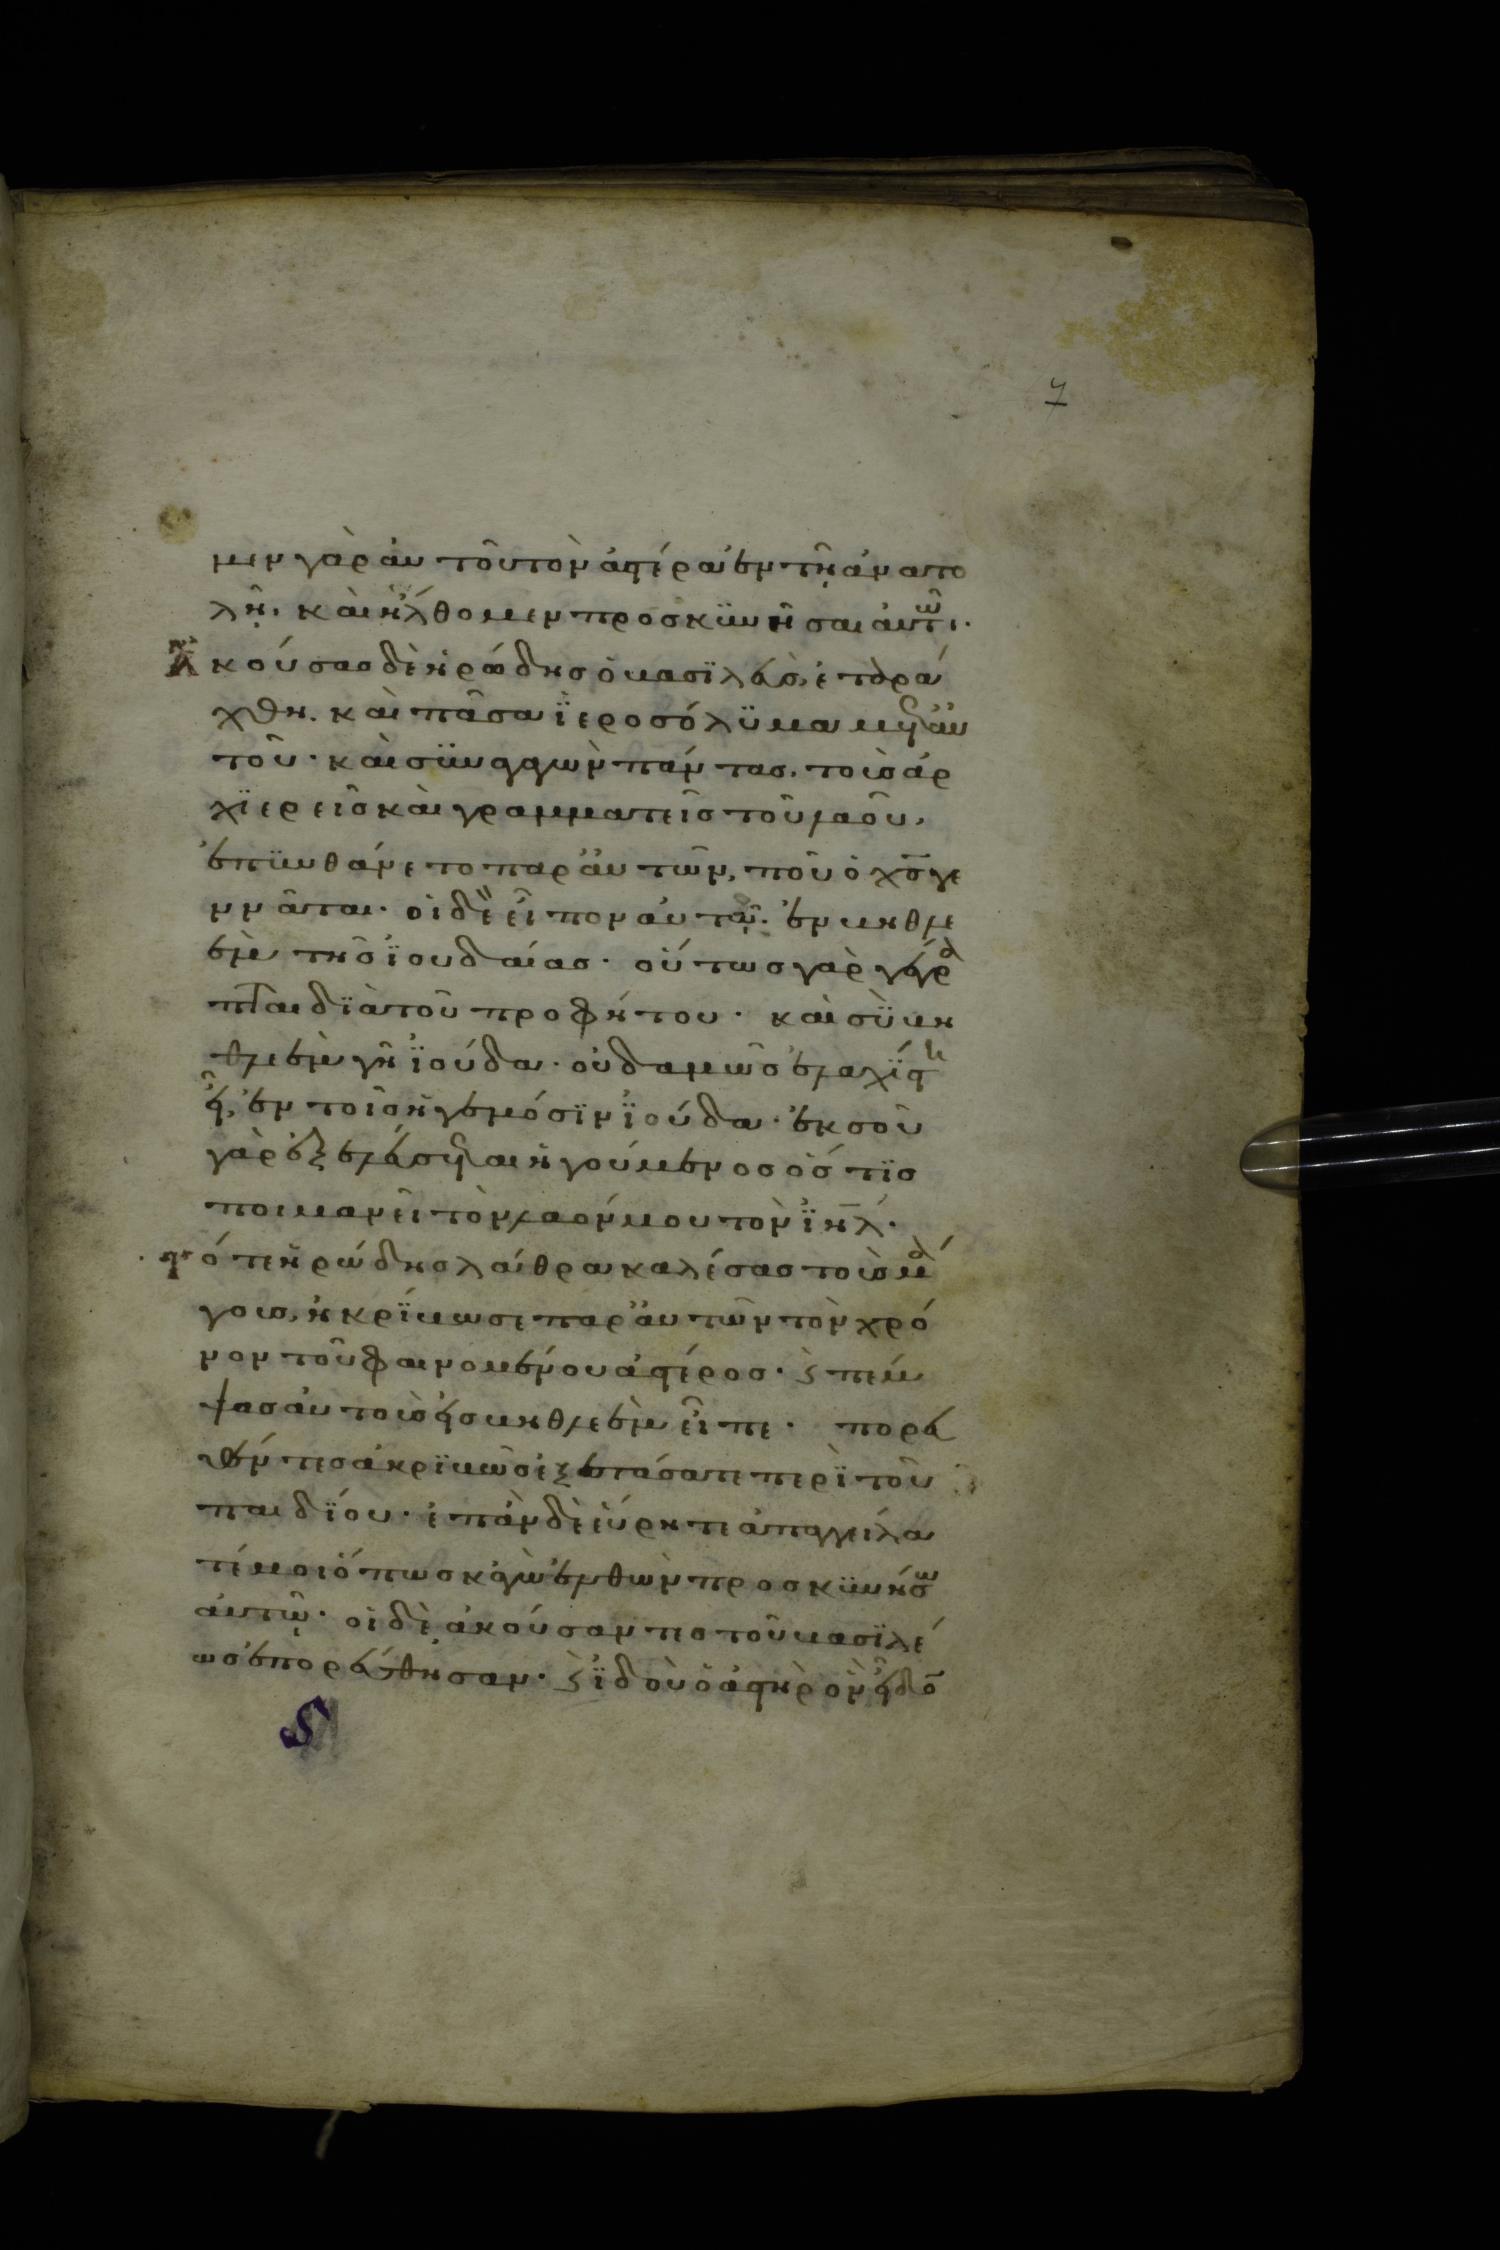 7
μεν γὰρ αὐτοῦ τὸν ἀστέρα ἐν τῇ ἀνατο
λῇ. καὶ ἤλθομεν προσκϋνῆσαι αὐτῶι.
Ἀκούσας δὲ ἡρώδης ὁ βασϊλεὺς, ἐταρά
χθη. καὶ πᾶσα ϊεροσόλϋμα μετ' αὐ
τοῦ. καὶ σϋναγαγὼν πάντας τοὺς ἀρ
χϊερεῖς καὶ γραμματεῖς τοῦ λαοῦ,
ἐπϋνθάνετο παρ' αὐτῶν, ποῦ ὁ χς γε
ννᾶται. οἱ δὲ εἶπον αὐτῷ. ἐν βηθλε
ὲμ τῆς ϊουδαίας. οὕτως γὰρ γέγρα
πται δϊὰ τοῦ προφήτου. καὶ σὺ βη
θλεὲμ γῆ ϊούδα. οὐδαμῶς ἐλαχίστη
εἶ, ἐν τοῖς ἡγεμόσϊν ϊούδα. ἐκ σοῦ
γὰρ ἐξελεύσεται ἡγούμενος ὅστϊς
ποιμανεῖ τὸν λαόν μου τὸν ϊηλ.
τότε ἡρώδης λάθρα καλέσας τοὺς μά
γους, ἠκρίβωσε παρ' αὐτῶν τὸν χρό
νον τοῦ φαινομένου ἀστέρος. ϗ πέμ
ψας αὐτοὺς εἰς βηθλεὲμ εἶπε. πορευ
θέντες ἀκρϊβῶς ἐξετάσατε περὶ τοῦ
παιδϊου. ἐπὰν δὲ εὕρητε ἀπαγγείλα
τέ μοι ὅπως κἀγὼ ἐλθὼν προσκϋνήσω
αὐτῷ. οἱ δὲ ἀκούσαντες τοῦ βασϊλέ
ως ἐπορεύθησαν. ϗ ϊδοὺ ὁ ἀστὴρ ὃν εἶδο